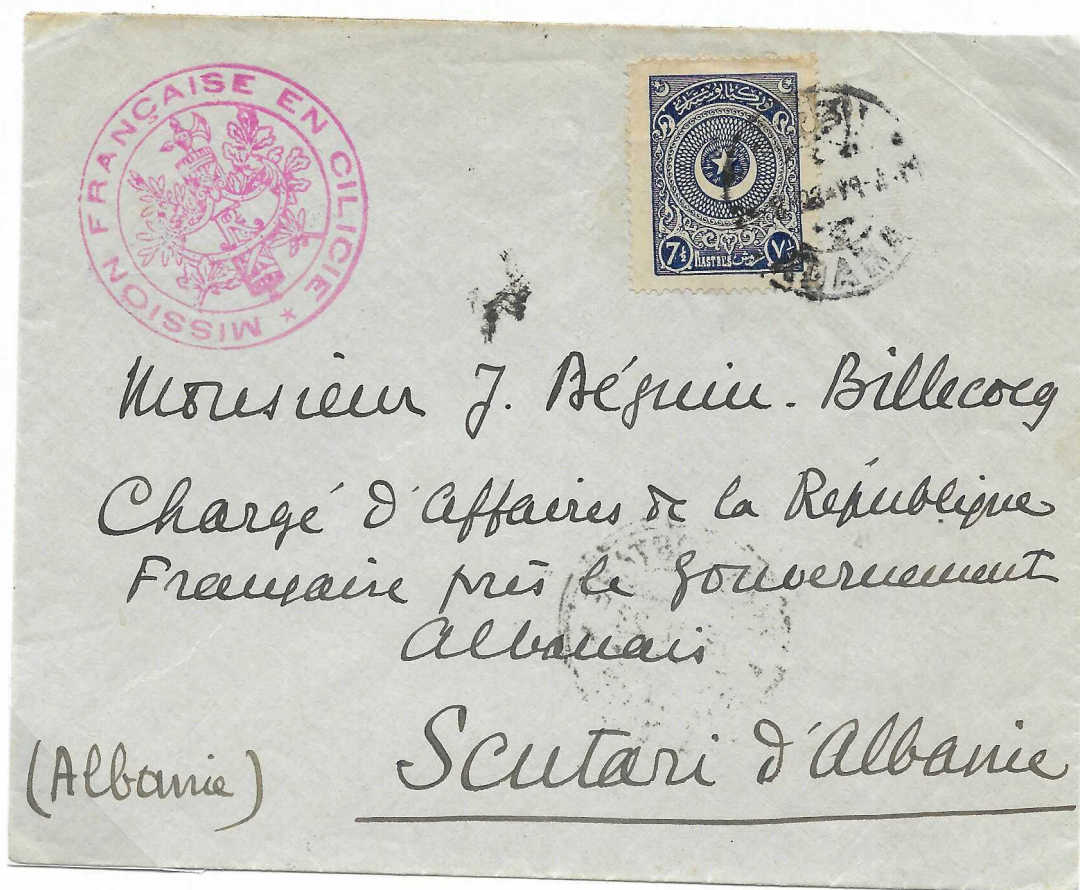 MISSION FRANÇAISE EN CILICIE
7½ PIASTRES غروش ٧½
ADANA
Monsieur J. Béguin-Billecocq
Chargé d'Affaires de la République
Française près le Gouvernement
Albanais
Scutari d'Albanie
(Albanie)